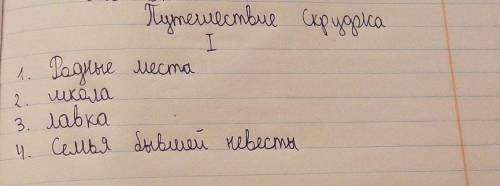 Путешествие Скруджа
I
1. Родные места
2. школа
3. лавка
4. Семья бывшей невесты